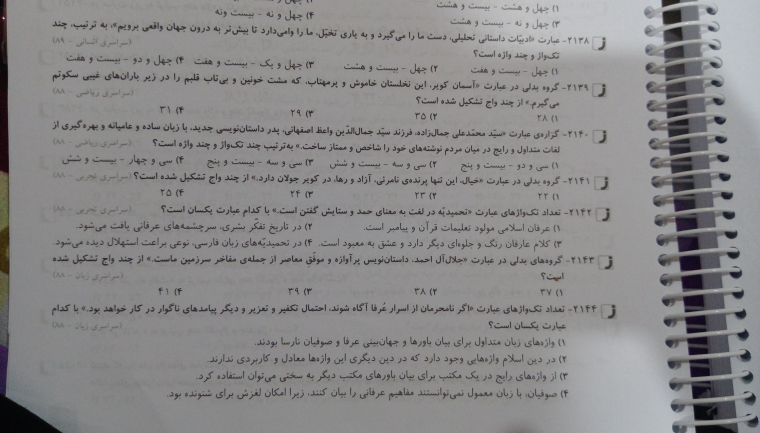 ۱) چهل و هشت - بیست و هشت
۳) چهل و نه - بیست و هشت ۴) چهل و نه - بیست ونه
۲۱۳۸- عبارت «ادبیّات داستانی تحلیلی، دست ما را می‌گیرد و به یاری تخیّل، ما را وامی‌دارد تا بیش‌تر به درون جهان واقعی برویم»، به ترتیب، چند
تک‌واژ و چند واژه است؟ (سراسری انسانی - ۸۹)
۱) چهل - بیست و هفت ۲) چهل - بیست و هشت ۳) چهل و یک - بیست و هفت ۴) چهل و دو - بیست و هفت
۲۱۳۹- گروه بدلی در عبارت «آسمان کویر، این نخلستان خاموش و پرمهتاب، که مشت خونین و بی‌تاب قلبم را در زیر باران‌های غیبی سکوتم
می‌گیرم.» از چند واج تشکیل شده است؟ (سراسری ریاضی - ۸۸)
۱) ۲۸ ۲) ۳۵ ۳) ۲۹ ۴) ۳۱
۲۱۴۰- گزاره‌ی عبارت «سیّد محمّدعلی جمال‌زاده، فرزند سیّد جمال‌الدّین واعظ اصفهانی، پدر داستان‌نویسی جدید، با زبان ساده و عامیانه و بهره‌گیری از
لغات متداول و رایج در میان مردم نوشته‌های خود را شاخص و ممتاز ساخت.» به‌ترتیب چند تک‌واژ و چند واژه است؟ (سراسری ریاضی - ۸۸)
۱) سی و دو - بیست و پنج ۲) سی و سه - بیست و شش ۳) سی و سه - بیست و پنج ۴) سی و چهار - بیست و شش
۲۱۴۱- گروه بدلی در عبارت «خیال، این تنها پرنده‌ی نامرئی، آزاد و رها، در کویر جولان دارد.» از چند واج تشکیل شده است؟ (سراسری تجربی - ۸۸)
۱) ۲۲ ۲) ۲۳ ۳) ۲۴ ۴) ۲۵
۲۱۴۲- تعداد تک‌واژهای عبارت «تحمیدیّه در لغت به معنای حمد و ستایش گفتن است.» با کدام عبارت یکسان است؟ (سراسری تجربی - ۸۸)
۱) عرفان اسلامی مولود تعلیمات قرآن و پیامبر است. ۲) در تاریخ تفکّر بشری، سرچشمه‌های عرفانی یافت می‌شود.
۳) کلام عارفان رنگ و جلوه‌ای دیگر دارد و عشق به معبود است. ۴) در تحمیدیّه‌های زبان فارسی، نوعی براعت استهلال دیده می‌شود.
۲۱۴۳- گروه‌های بدلی در عبارت «جلال‌آل احمد، داستان‌نویس پرآوازه و موفّق معاصر از جمله‌ی مفاخر سرزمین ماست.» از چند واج تشکیل شده
است؟ (سراسری زبان - ۸۸)
۱) ۳۷ ۲) ۳۸ ۳) ۳۹ ۴) ۴۱
۲۱۴۴- تعداد تک‌واژهای عبارت «اگر نامحرمان از اسرار عُرفا آگاه شوند، احتمال تکفیر و تعزیر و دیگر پیامدهای ناگوار در کار خواهد بود.» با کدام
عبارت یکسان است؟ (سراسری زبان - ۸۸)
۱) واژه‌های زبان متداول برای بیان باورها و جهان‌بینی عرفا و صوفیان نارسا بودند.
۲) در دین اسلام واژه‌هایی وجود دارد که در دین دیگری این واژه‌ها معادل و کاربردی ندارند.
۳) از واژه‌های رایج در یک مکتب برای بیان باورهای مکتب دیگر به سختی می‌توان استفاده کرد.
۴) صوفیان، با زبان معمول نمی‌توانستند مفاهیم عرفانی را بیان کنند، زیرا امکان لغزش برای شنونده بود.